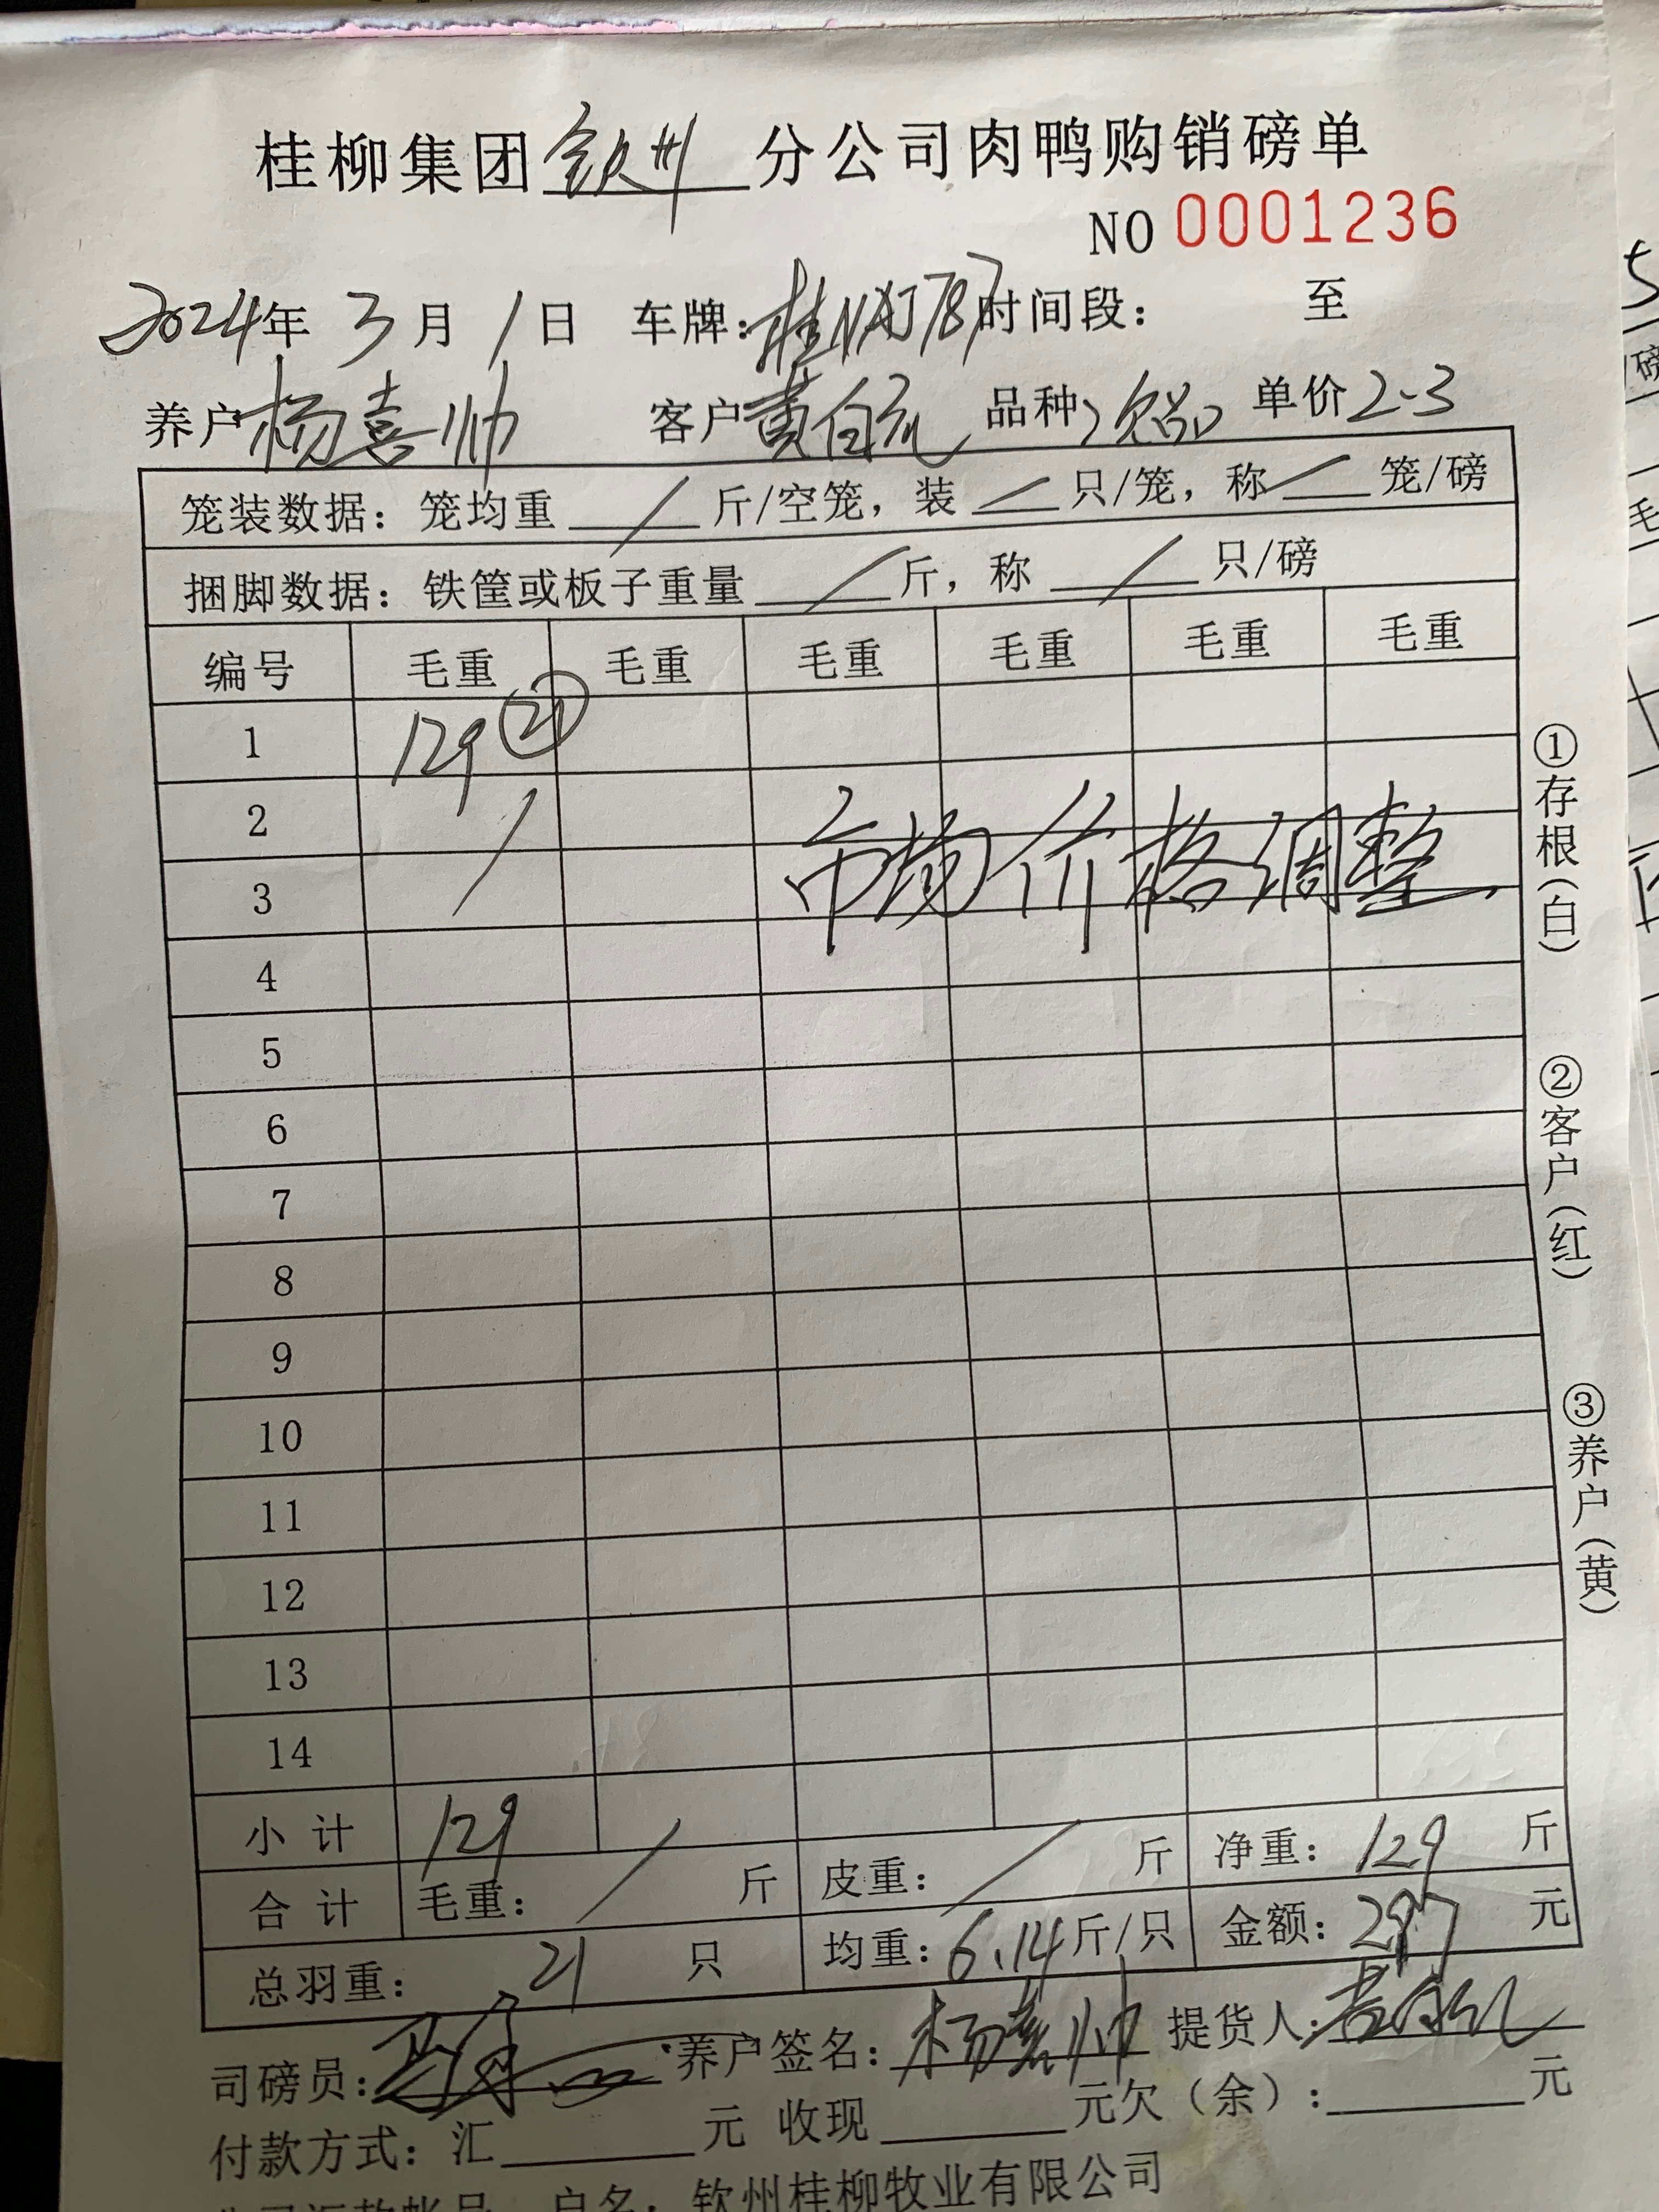 桂柳集团钦州分公司肉鸭购销磅单
NO 0001236
2024年 3月 1日 车牌:桂NAJ787 时间段: 至
养户 杨喜帅 客户 黄自 品种 次品 单价 2-3
笼装数据: 笼均重 / 斤/空笼, 装 / 只/笼, 称 / 笼/磅
捆脚数据: 铁筐或板子重量 / 斤, 称 / 只/磅
编号 毛重 毛重 毛重 毛重 毛重 毛重
1 129 ㉑
2 /
市场价格调整
3
4
5
6
7
8
9
10
11
12
13
14
小计 129
合计 毛重: / 斤 皮重: / 斤 净重: 129 斤
总羽重: 21 只 均重: 6.14 斤/只 金额: 297 元
司磅员: 养户签名: 杨喜帅 提货人:
付款方式: 汇 元 收现 元欠(余): 元
公司汇款帐号 户名: 钦州桂柳牧业有限公司
①存根(白)
②客户(红)
③养户(黄)